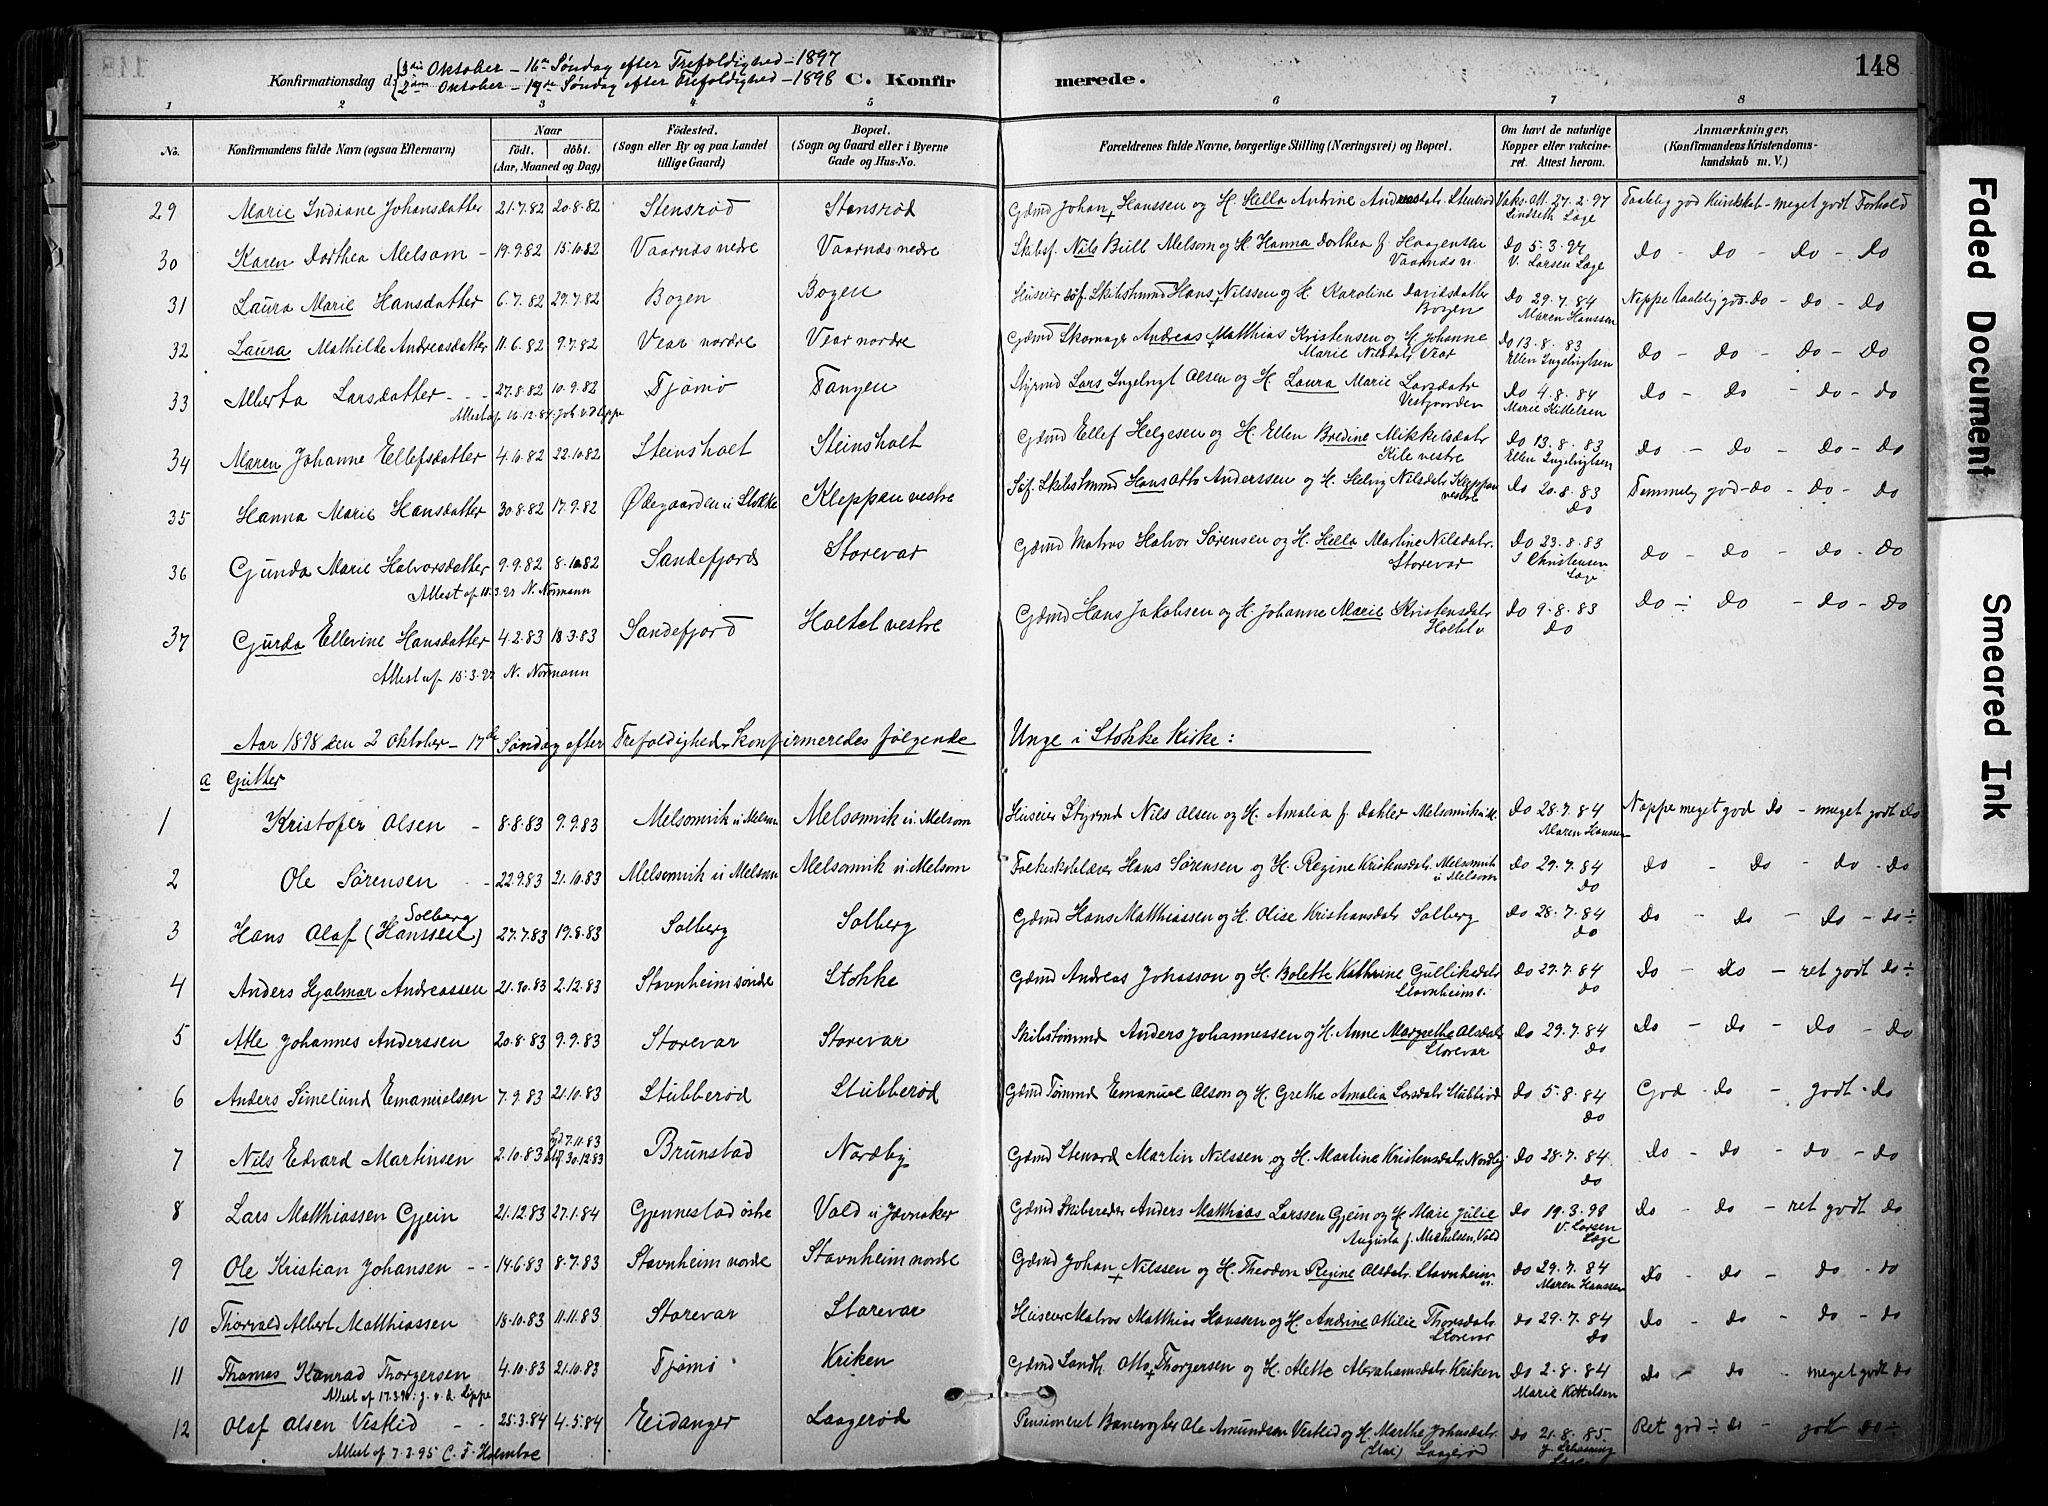 148
Konfirmationsdag d. 3die Oktober – 16de Søndag efter Trefoldighed – 1897
2den Oktober – 17de Søndag efter Trefoldighed – 1898
C. Konfirmerede.
1 2 3 4 5 6 7 8
No. Konfirmandens fulde Navn (ogsaa Efternavn) Naar født. døbt. (Aar, Maaned og Dag) Fødested. (Sogn eller By og paa Landet tillige Gaard) Bopæl. (Sogn og Gaard eller i Byerne Gade og Hus-No. Forældrenes fulde Navne, borgerlige Stilling (Næringsvei) og Bopæl. Om havt de naturlige Kopper eller vakcineret. Attest herom. Anmærkninger, (Konfirmandens Kristendomskundskab m. V.)
29 Marie Indiane Johansdatter 21.7.82 20.8.82 Stensrød Stensrød Gdmd Johan Hanssen og H. Hella Andrine Stensrød Vaks. att. 27.2.97 Lindseth Læge Taalelig god Kundskab – meget godt Forhold
30 Karen Dorthea Melsom – 19.9.82 15.10.82 Vaarnæs nedre Vaarnæs nedre Skibsf. Nils Bull Melsom og H. Hanna Dorthea f. Haagensen Vaarnæs n. do 5.3.97 V. Larsen Læge do – do – do – do
31 Laura Marie Hansdatter 6.7.82 29.7.82 Bogen Bogen Huseier Søf. Skibstmmd Hans Nilssen og H. Karoline Davidsdatter Bogen do 29.7.84 Maren Hanssen Neppe taalelig god – do – do – do
32 Laura Mathilde Andreasdatter 11.6.82 9.7.82 Vear nordre Vear nordre Gdmd Skomager Andreas Matthias Kristensen og H. Johanne Marie Nilsdatr. Vear do 13.8.83 Ellen Ingebrigtsen do – do – do – do
33 Alberta Larsdatter – – 27.8.82 10.9.82 Tjømø Tangen Styrmd Lars Ingebrigt Olsen og H. Laura Marie Larsdatr Vestgaarden do 4.8.84 Marie Kittelsen do – do – do – do
Attest af 16.12.84 Job v. d. Lippe
34 Maren Johanne Ellefsdatter 4.10.82 22.10.82 Steinsholt Steinsholt Gdmd Ellef Helgesen og H. Ellen Bredine Mikkelsdatr Kile vestre do 13.8.83 Ellen Ingebrigtsen do – do – do – do
35 Hanna Marie Hansdatter 30.8.82 17.9.82 Ødegaarden u. Stokke Kleppan vestre Søf. Skibstmmd Hans Otto Anderssen og H. Helvig Nilsdatr Kleppan vestre do 20.8.83 do Temmelig god – do – do – do
36 Gunda Marie Halvorsdatter 9.9.82 8.10.82 Sandefjord Storevar Gdmd Matros Halvor Sørensen og H. Hella Martine Nilsdatr. Storevar do 23.8.83 J Christensen Læge do – do – do – do
Attest af 11.3.97 N. Normann
37 Gurda Ellevine Hansdatter 4.2.83 18.3.83 Sandefjord Holtel vestre Gdmd Hans Jakobsen og H. Johanne Marie Kristensdatr Holtel v do 9.8.83 do do ÷ do – do – do
Attest af 15.3.97 N. Normann
Aar 1898 den 2 Oktober – 17de Søndag efter Trefoldighed Konfirmeredes følgende Unge i Stokke Kirke:
a Gutter
1 Kristofer Olsen – 8.8.83 9.9.83 Melsomvik u. Melsom Melsomvik u. Melsom Huseier Styrmd Nils Olsen og H. Amalia f. Dahler Melsomvik u. M. do 28.7.84 Maren Hanssen Neppe meget god do – meget godt do
2 Ole Sørensen – 22.9.83 21.10.83 Melsomvik u Melsom Melsomvik u. Melsom Folkeskolelærer Hans Sørensen og H. Regine Kristensdatr. Melsomvik u Melsom do 29.7.84 do do – do – do – do
3 Hans Olaf (Hanssen) Solberg 27.7.83 19.8.83 Solberg Solberg Gdmd Hans Matthiassen og H. Olise Kristiansdatr Solberg do 28.7.84 do do – do – do – do ÷
4 Anders Hjalmar Andreassen 21.10.83 2.12.83 Stavnheim søndre Stokke Gdmd Andreas Johansson og H. Bolette Kathrine Gulliksdatr Stavnheim s. do 29.7.84 do do – do – ret godt do ÷
5 Atle Johannes Anderssen 20.8.83 9.9.83 Storevar Storevar Skibstømmd Anders Johannessen og H. Anne Margrethe Olsdatr Storevar do 29.7.84 do do – do – do – do
6 Anders Simelund Emanuelsen 7.9.83 21.10.83 Stubberød Stubberød Gdmd Tømmd Emanuel Olson og H. Grethe Amalia Larsdatr Stubberød do 5.8.84 do God – do – godt – do
7 Nils Edvard Martinsen 2.10.83 7.11.83 30.12.83 Brunstad Nordby Gdmd Steward Martin Nilssen og H. Martine Kristensdatr. Nordby do 28.7.84 do do – do – do – do
8 Lars Matthiassen Gjein 21.12.83 27.1.84 Gjennestad østre Vold u Jevnaker Gdmd Skibsreder Anders Matthias Larssen Gjein og H. Marie Julie Augusta f. Michelsen, Vold do 19.3.98 V. Larsen Læge do – do – ret godt do
9 Ole Kristian Johansen – – 14.6.83 8.7.83 Stavnheim nordre Stavnheim nordre Gdmd Johan Nilssen og H. Theodora Regine Olsdatr. Stavnheim n. do 29.7.84 Maren Hanssen do – do – do – do
10 Thorvald Albert Matthiassen 18.10.83 11.11.83 Storevar Storevar Huseier Matros Matthias Hanssen og H. Andrine Otilie Thorsdatr. Storevar do 29.7.84 do do – do – do – do
11 Thomas Konrad Thorgersen 4.10.83 21.10.83 Tjømø Kriken Gdmd Landh. Otto Thorgersen og H. Alette Abrahamsdatr. Kriken do 2.8.84 Marie Kittelsen do – do – meget godt do
Attest af 17.3.98 J. v. d. Lippe
12 Olaf Olsen Vestlid – – 25.3.84 4.5.84 Eidanger Laagerød Pensioneret Banevogter Ole Amundsen Vestlid og H. Marthe Johnsdatr. Laagerød do 21.8.85 Læge Ret god ÷ do – godt do ÷
Attest af 7.3.95 C. F. Holmboe
Faded Document
Smeared Ink